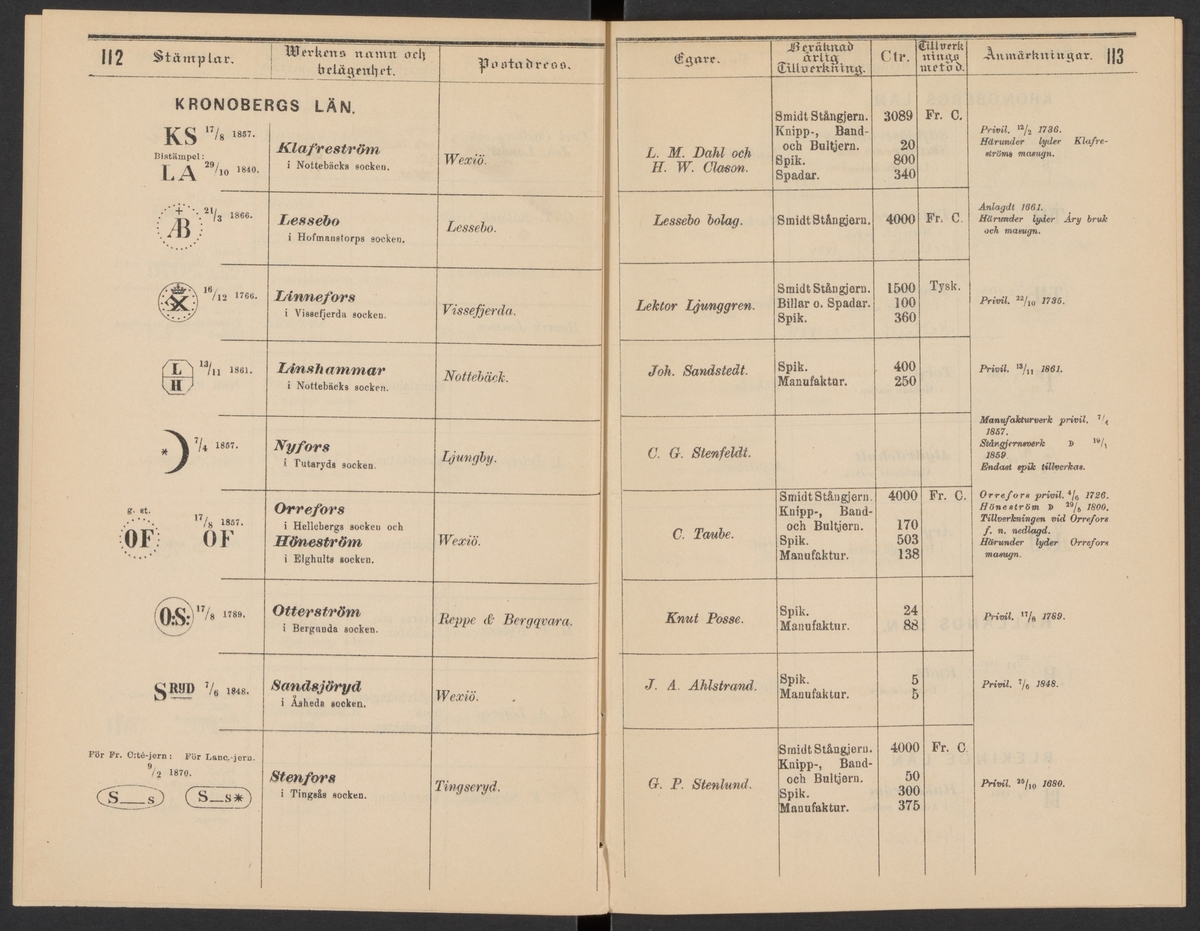 112 Stämplar. Werkens namn och belägenhet. Postadress.
KRONOBERGS LÄN.
KS 17/8 1857.
Bistämpel:
LA 29/10 1840.
Klafreström
i Nottebäcks socken.
Wexiö.
ÅB 21/3 1866.
Lessebo
i Hofmanstorps socken.
Lessebo.
16/12 1766.
Linnefors
i Vissefjerda socken.
Vissefjerda.
L
H
13/11 1861.
Linshammar
i Nottebäcks socken.
Nottebäck.
* 7/4 1857.
Nyfors
i Tutaryds socken.
Ljungby.
g. st.
OF
17/8 1857.
OF
Orrefors
i Hellebergs socken och
Höneström
i Elghults socken.
Wexiö.
O:S: 17/8 1789.
Otterström
i Bergunda socken.
Reppe & Bergqvara.
SRYD 7/6 1848.
Sandsjöryd
i Åsheda socken.
Wexiö.
För Fr. C:té-jern: För Lanc.-jern.
9/2 1870.
S__s S__s*
Stenfors
i Tingsås socken.
Tingseryd.
Egare. Beräknad årlig Tillverkning. Ctr. Tillverknings metod. Anmärkningar. 113
L. M. Dahl och
H. W. Clason.
Smidt Stångjern. 3089 Fr. C.
Knipp-, Band-
och Bultjern. 20
Spik. 800
Spadar. 340
Privil. 12/2 1736.
Härunder lyder Klafre-
ströms masugn.
Lessebo bolag.
Smidt Stångjern. 4000 Fr. C.
Anlagdt 1661.
Härunder lyder Åry bruk
och masugn.
Lektor Ljunggren.
Smidt Stångjern. 1500 Tysk.
Billar o. Spadar. 100
Spik. 360
Privil. 22/10 1735.
Joh. Sandstedt.
Spik. 400
Manufaktur. 250
Privil. 13/11 1861.
C. G. Stenfeldt.
Manufakturverk privil. 7/4
1857.
Stångjernsverk D 19/1
1859
Endast spik tillverkas.
C. Taube.
Smidt Stångjern. 4000 Fr. C.
Knipp-, Band-
och Bultjern. 170
Spik. 503
Manufaktur. 138
Orrefors privil. 4/6 1726.
Höneström D 29/5 1800.
Tillverkningen vid Orrefors
f. n. nedlagd.
Härunder lyder Orrefors
masugn.
Knut Posse.
Spik. 24
Manufaktur. 88
Privil. 17/8 1789.
J. A. Ahlstrand.
Spik. 5
Manufaktur. 5
Privil. 7/6 1848.
G. P. Stenlund.
Smidt Stångjern. 4000 Fr. C.
Knipp-, Band-
och Bultjern. 50
Spik. 300
Manufaktur. 375
Privil. 25/10 1680.